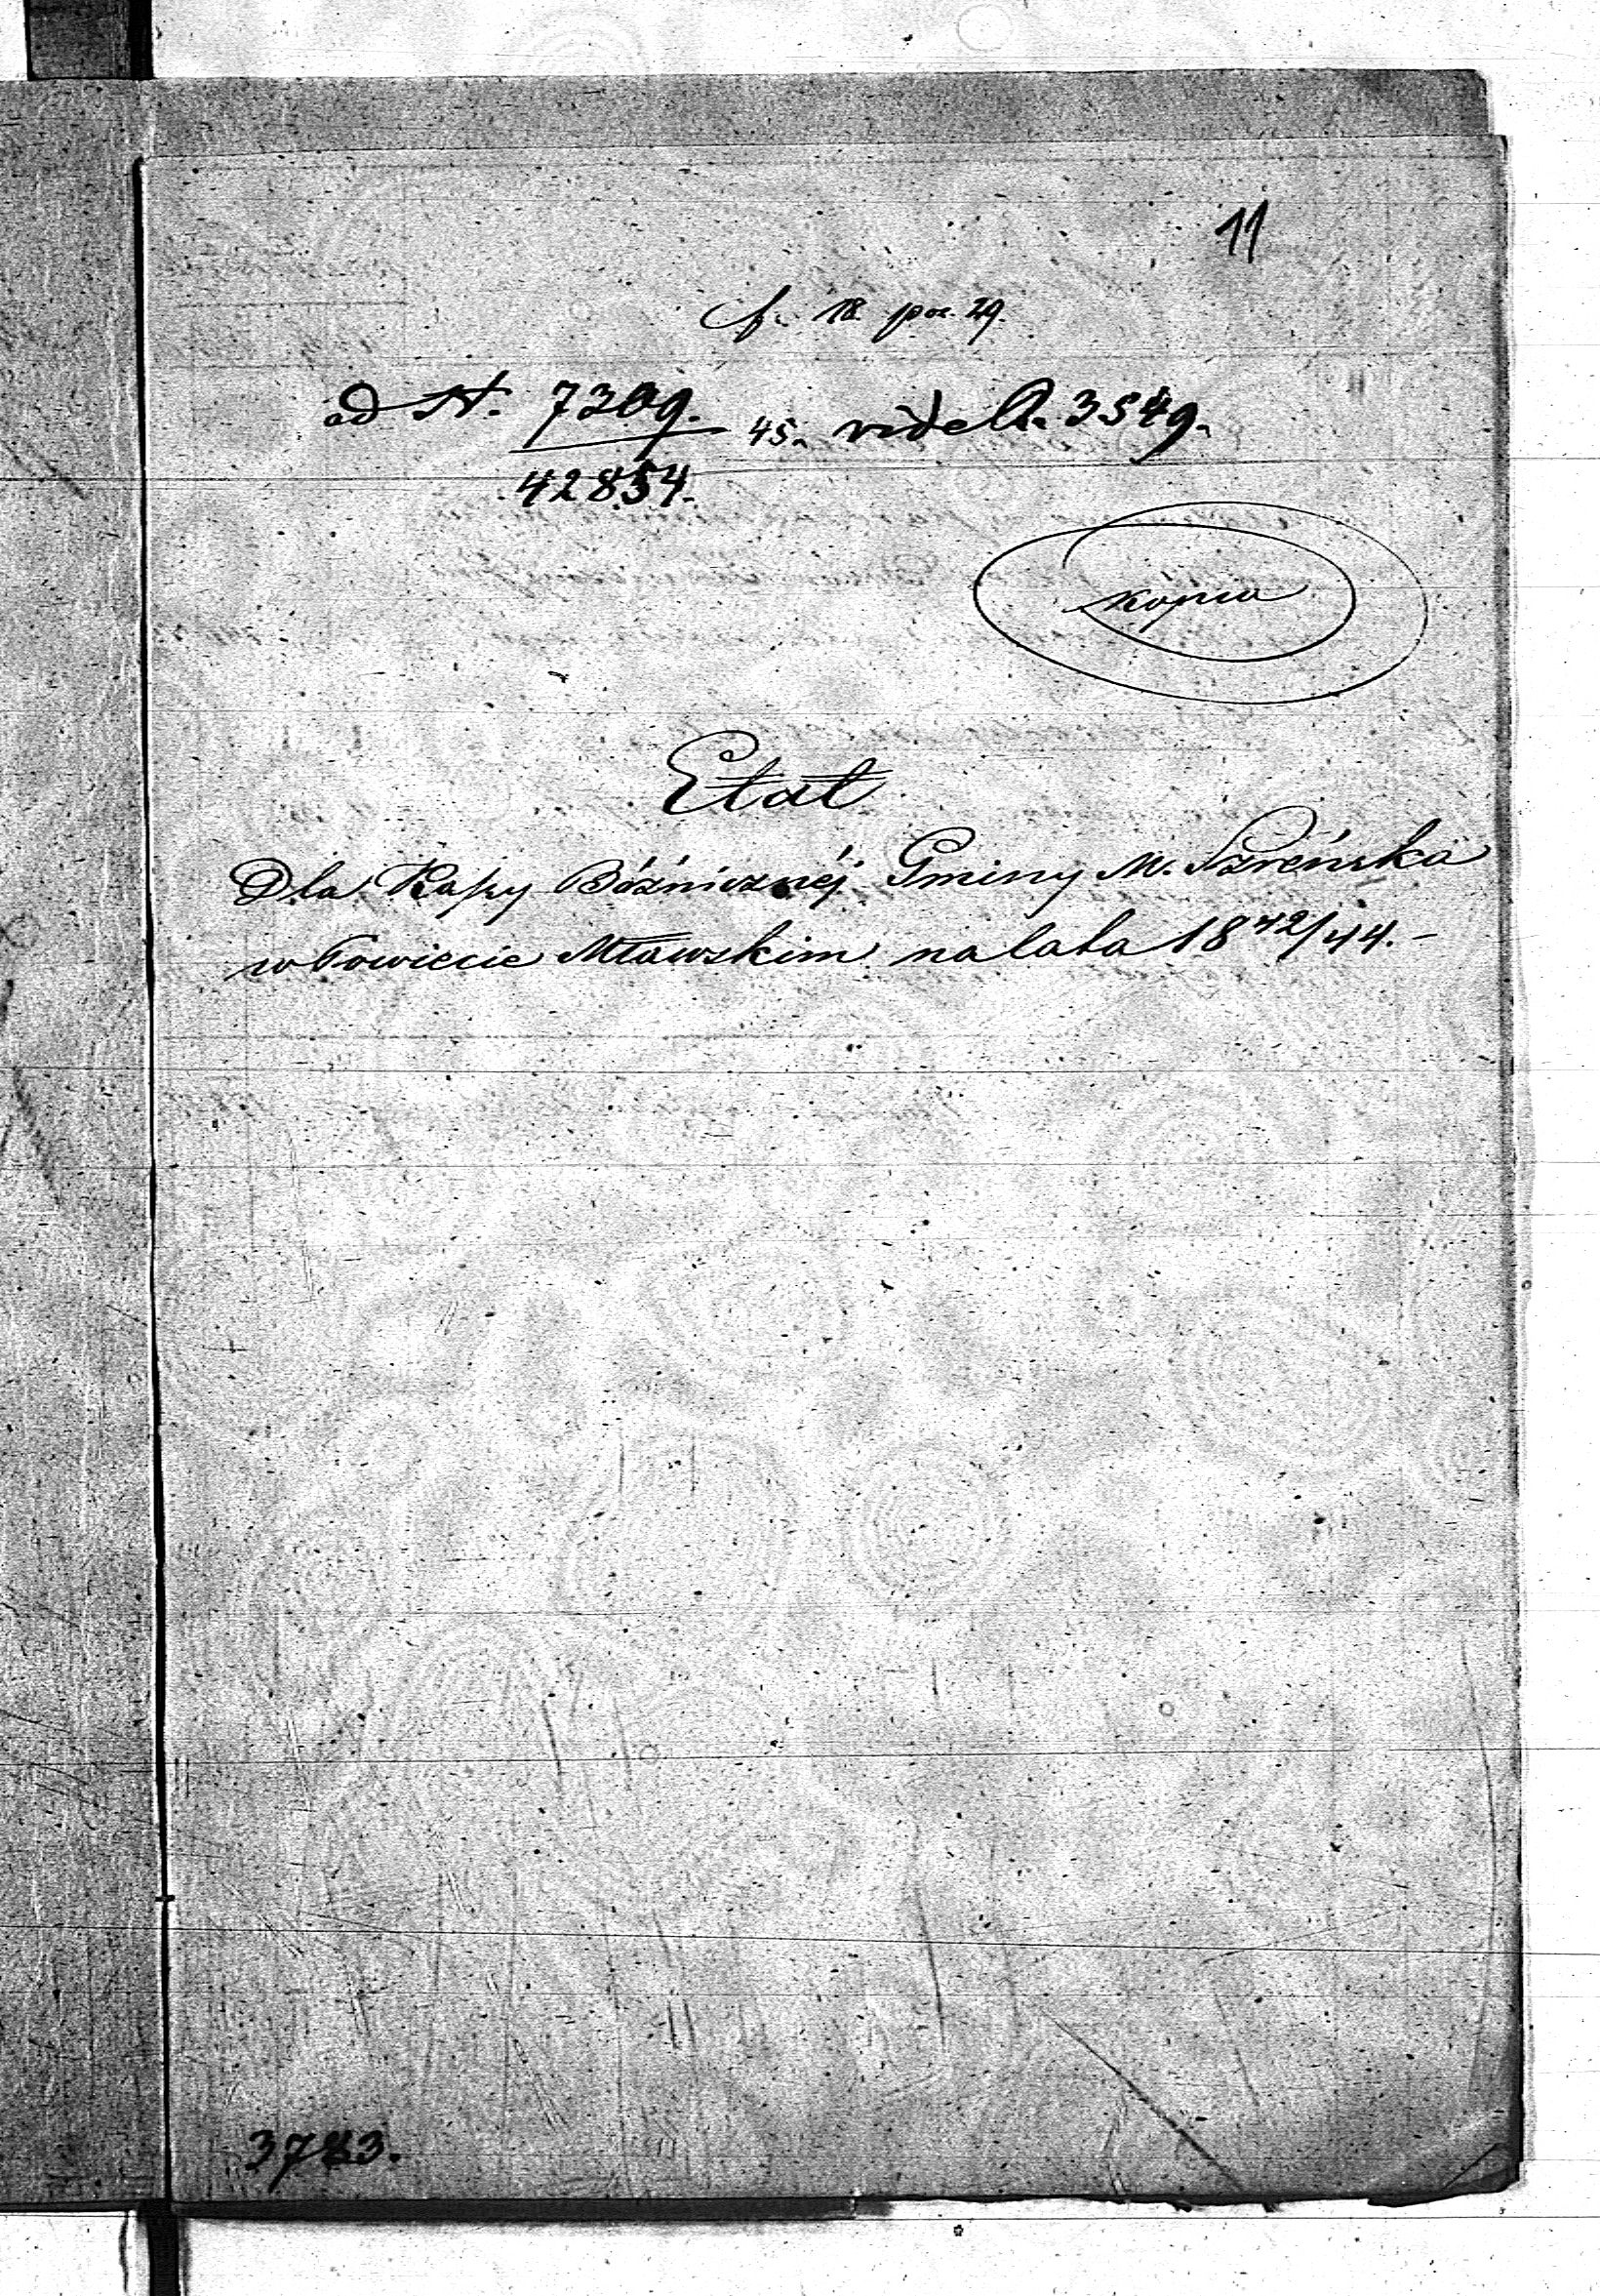 11
f. 18. poz. 29.
ad N. 7309. 45. vide N. 3549.
42854.
kopia
Etat
Dla Kassy Bóźnicznéj Gminy M. Szreńska
w Powiecie Mławskim na lata 1842/44. –
3783.